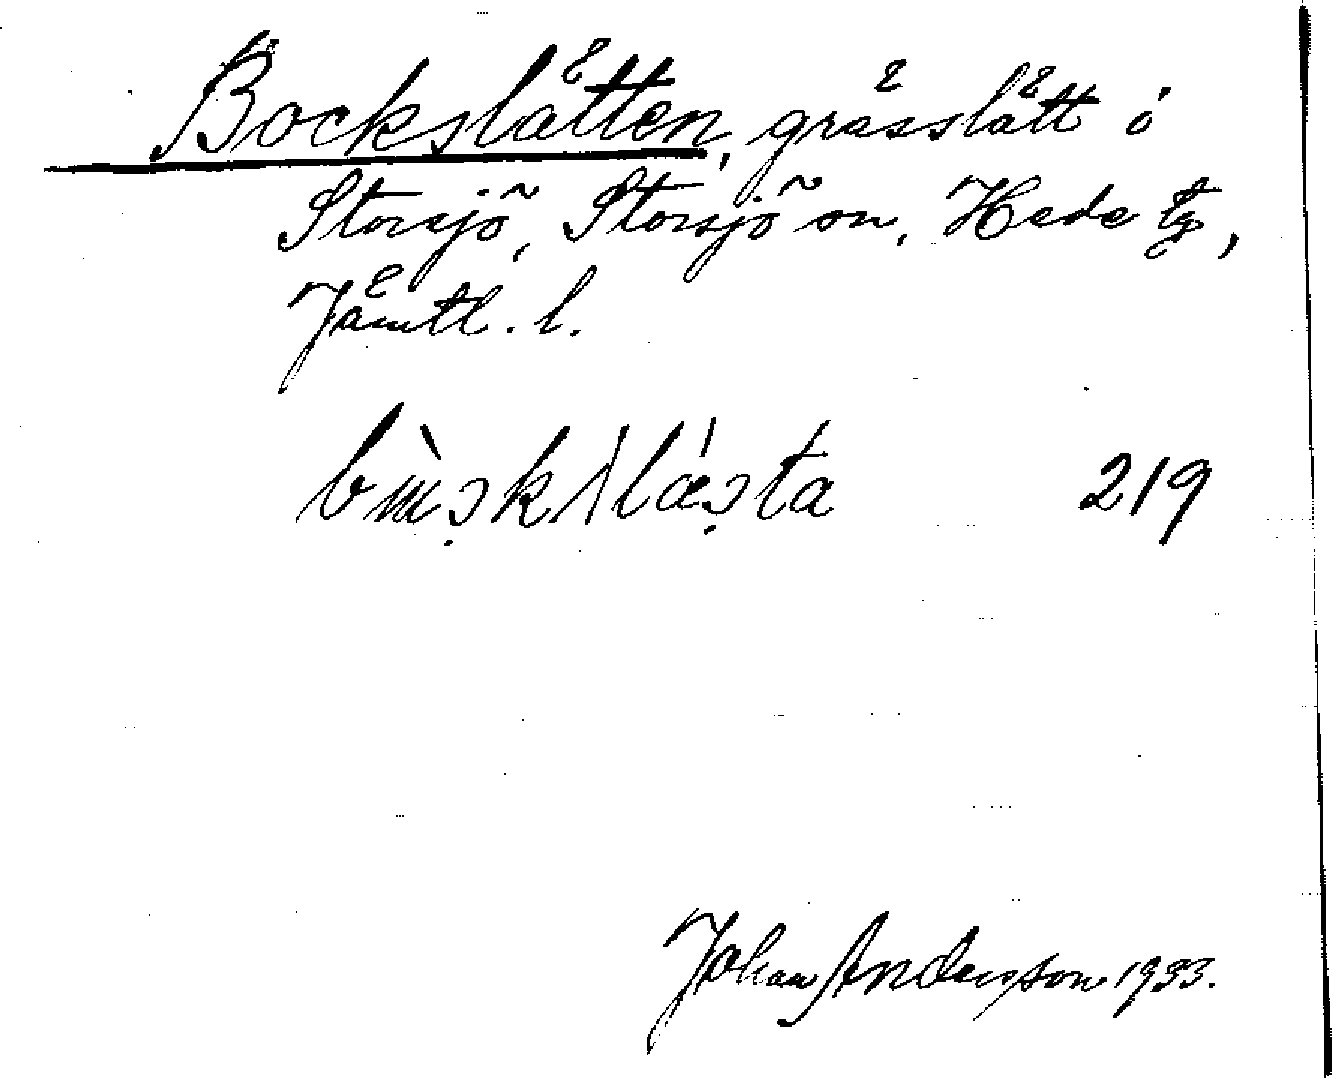 Bockslåtten, grässlått i
Storsjö, Storsjö sn, Hede tg,
Jämtl. l.
219
Johan Andersson 1933.